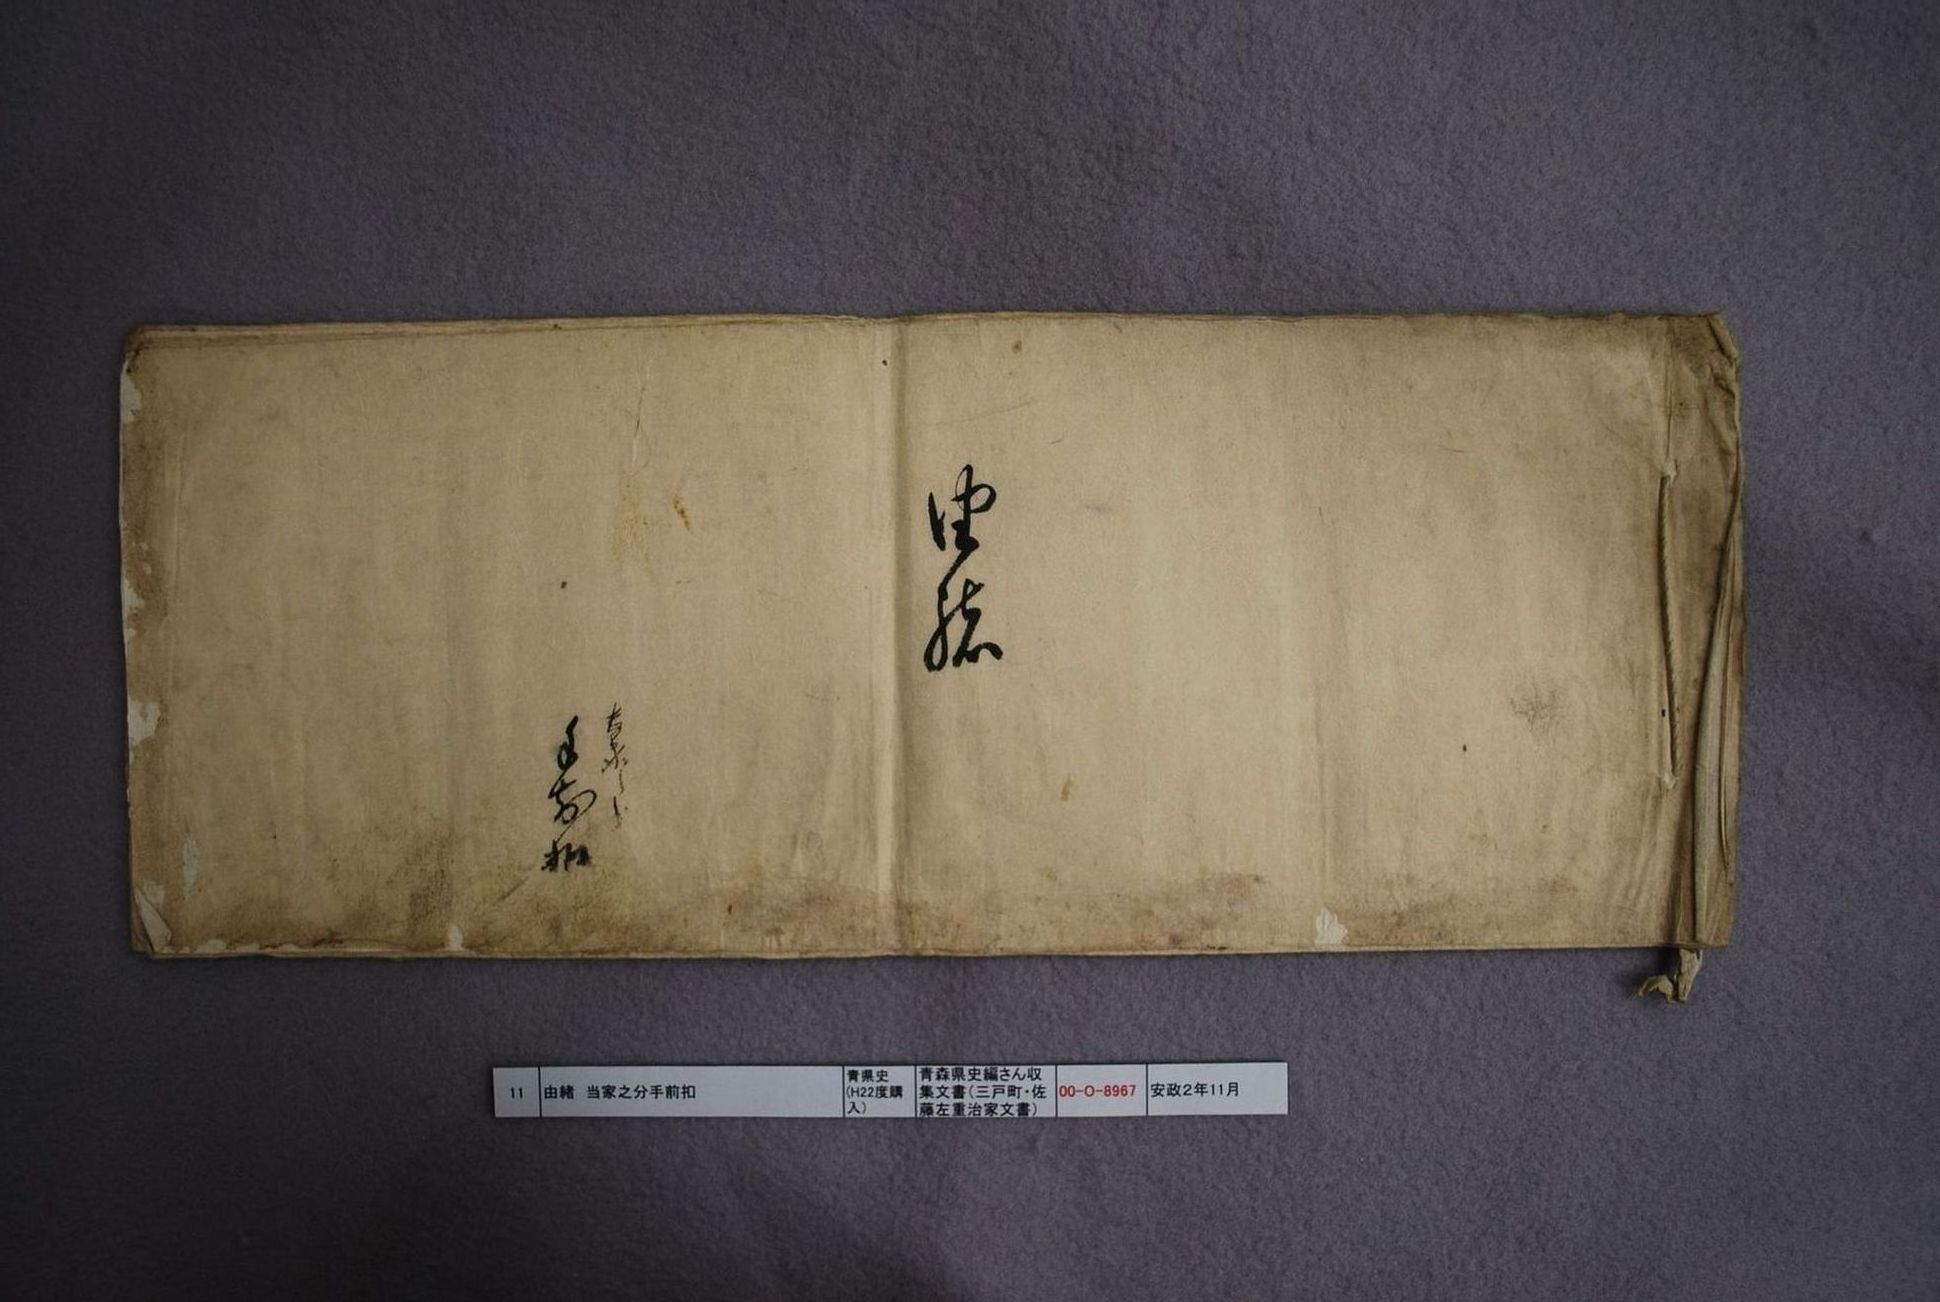 由緒
当家之分
手前扣
11
由緒 当家之分手前扣
青県史
(H22度購
入)
青森県史編さん収
集文書(三戸町・佐
藤左重治家文書)
00-O-8967
安政2年11月